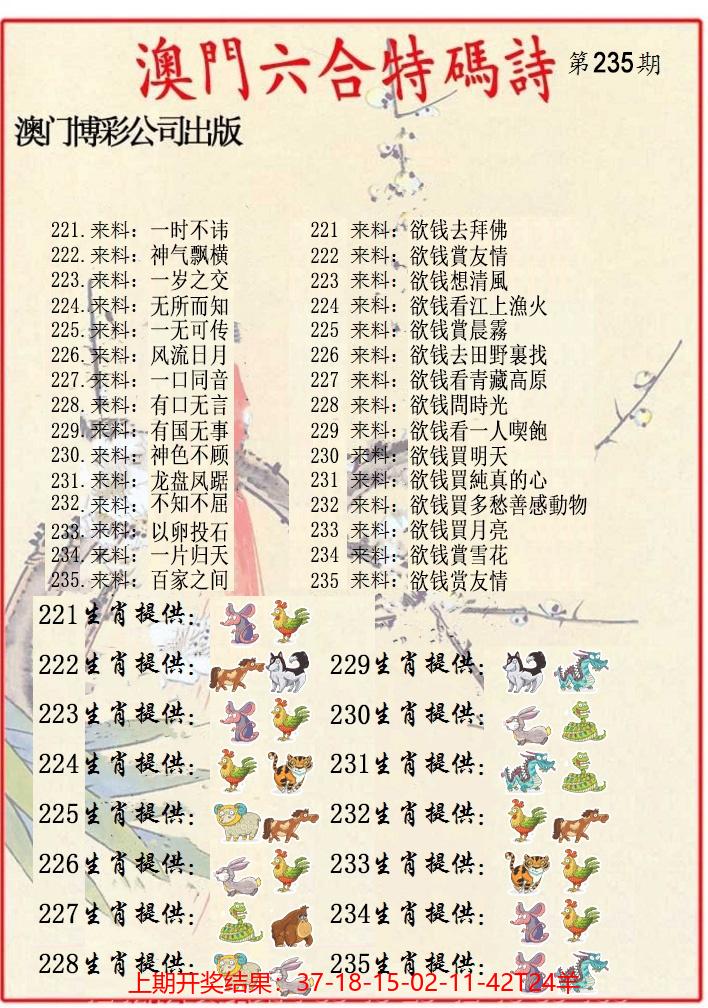 澳門六合特碼詩 第235期
澳门博彩公司出版
221.来料：一时不讳
222.来料：神气飘横
223.来料：一岁之交
224.来料：无所而知
225.来料：一无可传
226.来料：风流日月
227.来料：一口同音
228.来料：有口无言
229.来料：有国无事
230.来料：神色不顾
231.来料：龙盘凤踞
232.来料：不知不屈
233.来料：以卵投石
234.来料：一片归天
235.来料：百家之间
221 来料：欲钱去拜佛
222 来料：欲钱賞友情
223 来料：欲钱想清風
224 来料：欲钱看江上漁火
225 来料：欲钱賞晨霧
226 来料：欲钱去田野裏找
227 来料：欲钱看青藏高原
228 来料：欲钱問時光
229 来料：欲钱看一人喫飽
230 来料：欲钱買明天
231 来料：欲钱買純真的心
232 来料：欲钱買多愁善感動物
233 来料：欲钱買月亮
234 来料：欲钱賞雪花
235 来料：欲钱赏友情
221生肖提供：
222生肖提供：
223生肖提供：
224生肖提供：
225生肖提供：
226生肖提供：
227生肖提供：
228生肖提供：
229生肖提供：
230生肖提供：
231生肖提供：
232生肖提供：
233生肖提供：
234生肖提供：
235生肖提供：
上期开奖结果：37-18-15-02-11-42T24羊